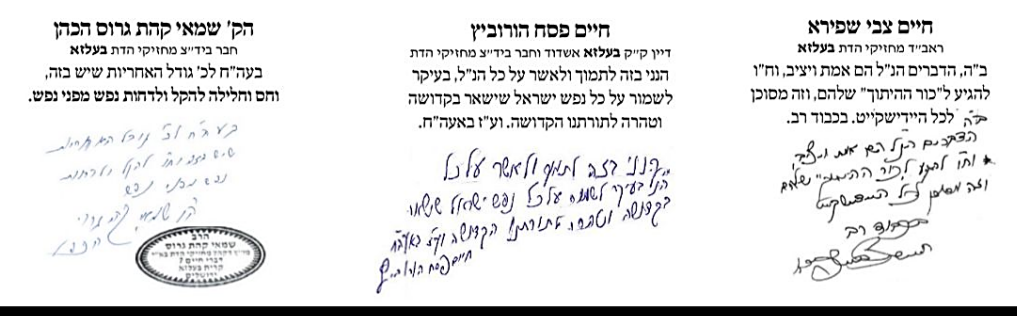 חיים צבי שפירא
ראב״ד מחזיקי הדת בעלזא
ב״ה, הדברים הנ״ל הם אמת ויציב, וח״ו
להגיע ל״כור ההיתוך״ שלהם, וזה מסוכן
לכל היידישקייט. בכבוד רב.
ב״ה
הדברים הנ״ל הם אמת ויציב,
וח״ו להגיע לכור ההיתוך״ שלהם
וזה מסוכן לכל היידישקייט
בכבוד רב
חיים פסח הורוביץ
דיין ק״ק בעלזא אשדוד וחבר ביד״צ מחזיקי הדת
הנני בזה לתמוך ולאשר על כל הנ״ל, בעיקר
לשמור על כל נפש ישראל שישאר בקדושה
וטהרה לתורתנו הקדושה. וע״ז באעה״ח.
הנני בזה לתמוך ולאשר על כל
הנ״ל בעיקר לשמור על כל נפש ישראל שישאר
בקדושה וטהרה לתורתנו הקדושה וע״ז באעה״ח
חיים פסח הורוביץ
הק׳ שמאי קהת גרוס הכהן
חבר ביד״צ מחזיקי הדת בעלזא
בעה״ח לכ׳ גודל האחריות שיש בזה,
וחס וחלילה להקל ולדחות נפש מפני נפש.
בעה״ח לכ׳ גודל האחריות
שיש בזה וח״ו להקל ולדחות
נפש מפני נפש
הק׳ שמאי קהת גרוס
הכהן
הרב
שמאי קהת גרוס
דברי חיים 7
קרית בעלזא
ירושלים